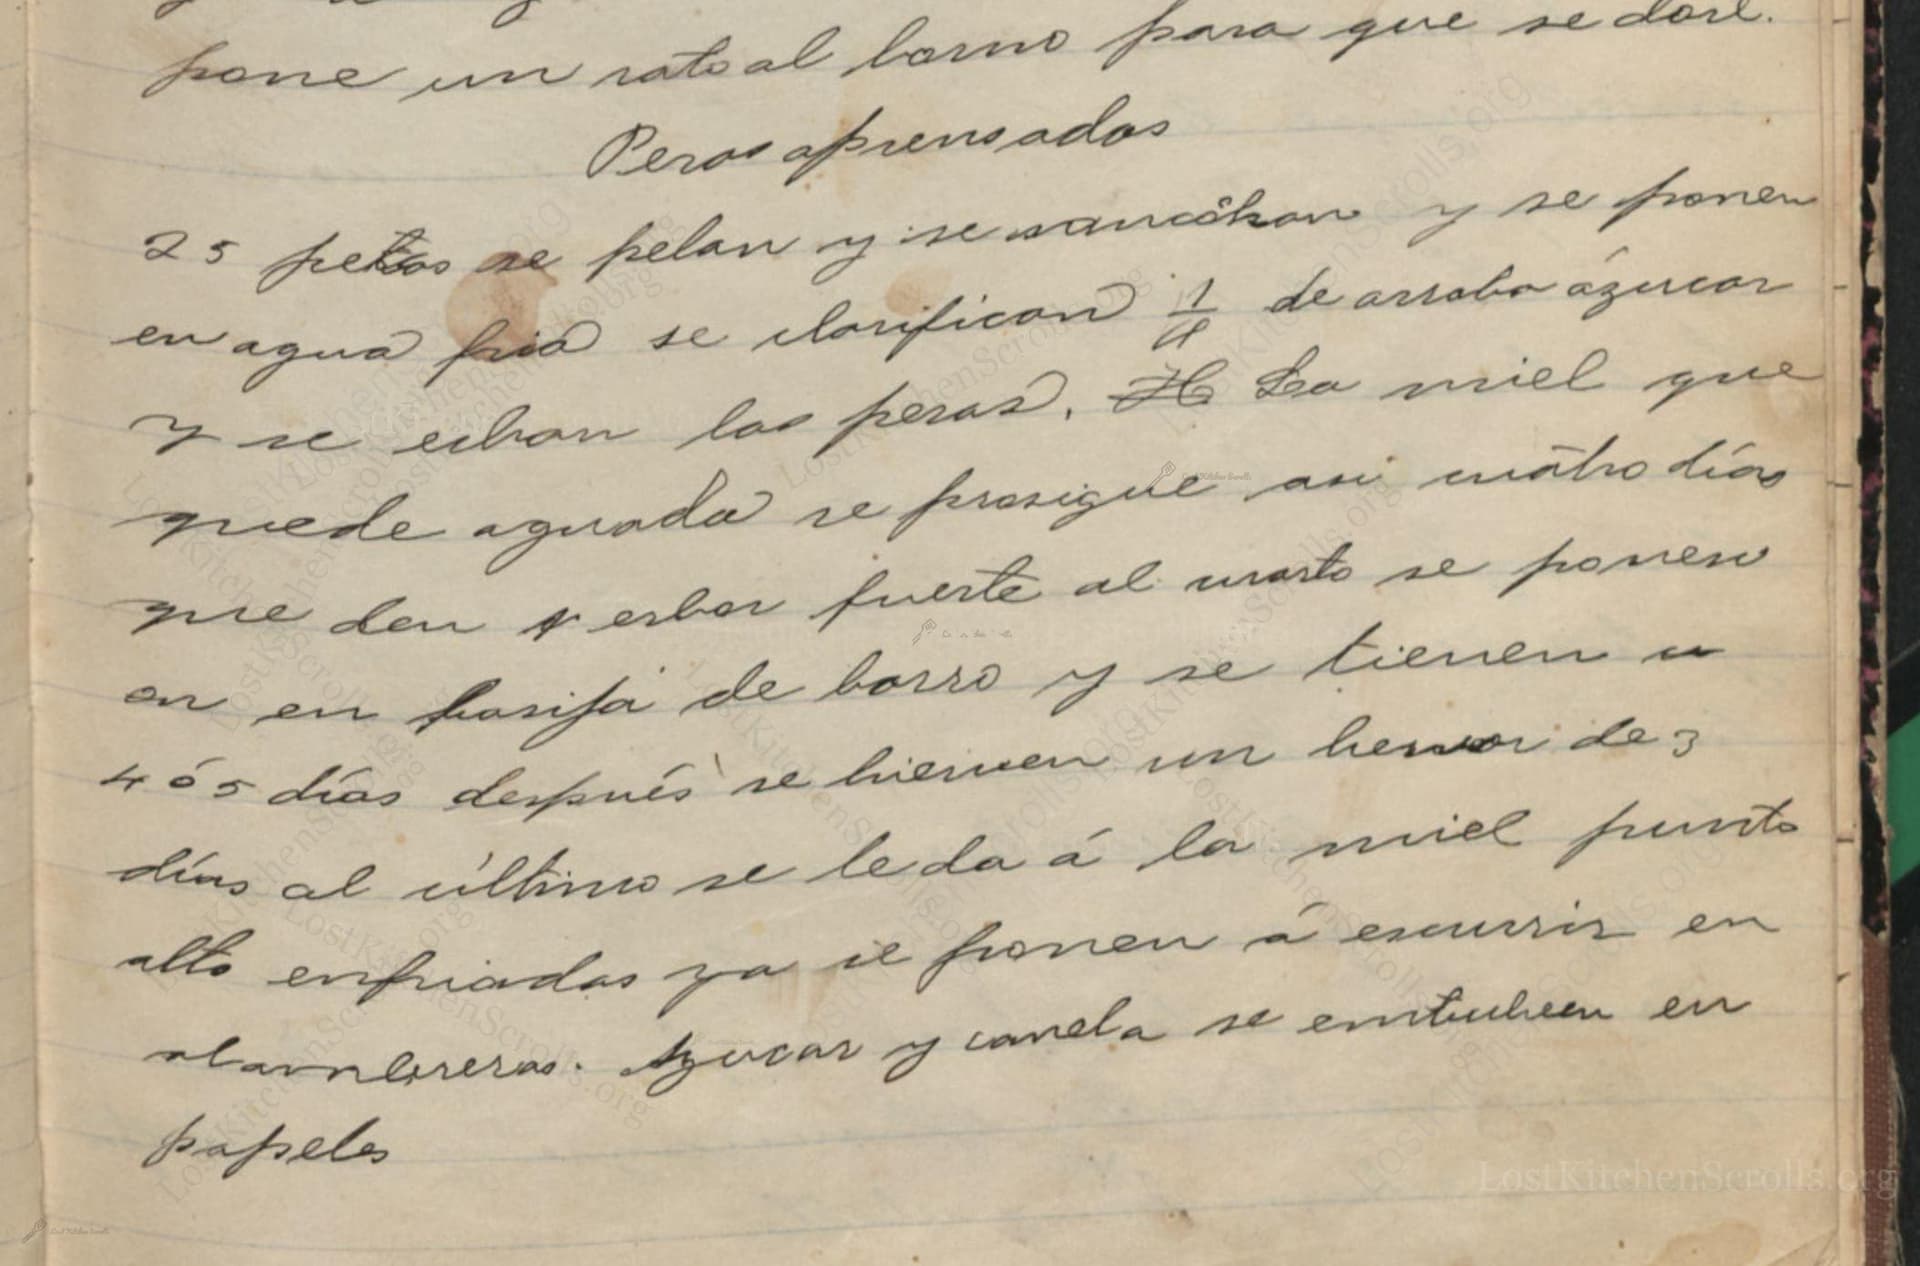 pone un rato al horno para que se dore.
Peras aprensadas
25 peras se pelan y se sancôhan y se ponen
en agua fria se clarifican 1/4 de arroba ázucar
y se echan las peras. La miel que
quede aguada se prosigue asi cuátro días
que den herbor fuerte al cuarto se ponen
en en basija de barro y se tienen
4 ó 5 días después se hierven un hervor de 3
días al último se le da á la miel punto
alto enfriadas ya se ponen á escurrir en
alambreras. Azucar y canela se embuelven en
papeles
LostKitchenScrolls.org